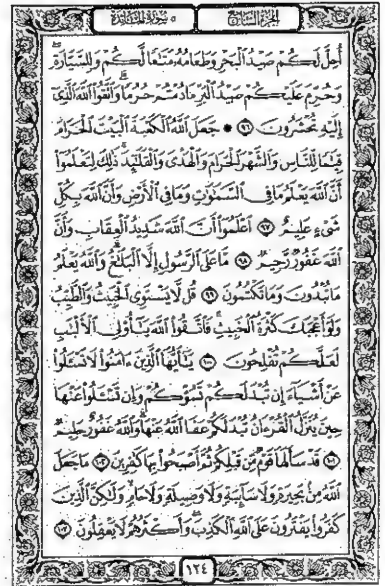 الجزء السابع
٥ سورة المائدة
أُحِلَّ لَكُمْ صَيْدُ ٱلْبَحْرِ وَطَعَامُهُۥ مَتَٰعًا لَّكُمْ وَلِلسَّيَّارَةِ ۖ
وَحُرِّمَ عَلَيْكُمْ صَيْدُ ٱلْبَرِّ مَا دُمْتُمْ حُرُمًا ۗ وَٱتَّقُوا۟ ٱللَّهَ ٱلَّذِىٓ
إِلَيْهِ تُحْشَرُونَ ٩٦ * جَعَلَ ٱللَّهُ ٱلْكَعْبَةَ ٱلْبَيْتَ ٱلْحَرَامَ
قِيَٰمًا لِّلنَّاسِ وَٱلشَّهْرَ ٱلْحَرَامَ وَٱلْهَدْىَ وَٱلْقَلَٰٓئِدَ ۚ ذَٰلِكَ لِتَعْلَمُوٓا۟
أَنَّ ٱللَّهَ يَعْلَمُ مَا فِى ٱلسَّمَٰوَٰتِ وَمَا فِى ٱلْأَرْضِ وَأَنَّ ٱللَّهَ بِكُلِّ
شَىْءٍ عَلِيمٌ ٩٧ ٱعْلَمُوٓا۟ أَنَّ ٱللَّهَ شَدِيدُ ٱلْعِقَابِ وَأَنَّ
ٱللَّهَ غَفُورٌ رَّحِيمٌ ٩٨ مَّا عَلَى ٱلرَّسُولِ إِلَّا ٱلْبَلَٰغُ ۗ وَٱللَّهُ يَعْلَمُ
مَا تُبْدُونَ وَمَا تَكْتُمُونَ ٩٩ قُل لَّا يَسْتَوِى ٱلْخَبِيثُ وَٱلطَّيِّبُ
وَلَوْ أَعْجَبَكَ كَثْرَةُ ٱلْخَبِيثِ ۚ فَٱتَّقُوا۟ ٱللَّهَ يَٰٓأُو۟لِى ٱلْأَلْبَٰبِ
لَعَلَّكُمْ تُفْلِحُونَ ١٠٠ يَٰٓأَيُّهَا ٱلَّذِينَ ءَامَنُوا۟ لَا تَسْـَٔلُوا۟
عَنْ أَشْيَآءَ إِن تُبْدَ لَكُمْ تَسُؤْكُمْ وَإِن تَسْـَٔلُوا۟ عَنْهَا
حِينَ يُنَزَّلُ ٱلْقُرْءَانُ تُبْدَ لَكُمْ عَفَا ٱللَّهُ عَنْهَا ۗ وَٱللَّهُ غَفُورٌ حَلِيمٌ
١٠١ قَدْ سَأَلَهَا قَوْمٌ مِّن قَبْلِكُمْ ثُمَّ أَصْبَحُوا۟ بِهَا كَٰفِرِينَ ١٠٢ مَا جَعَلَ
ٱللَّهُ مِنۢ بَحِيرَةٍ وَلَا سَآئِبَةٍ وَلَا وَصِيلَةٍ وَلَا حَامٍ ۙ وَلَٰكِنَّ ٱلَّذِينَ
كَفَرُوا۟ يَفْتَرُونَ عَلَى ٱللَّهِ ٱلْكَذِبَ ۖ وَأَكْثَرُهُمْ لَا يَعْقِلُونَ ١٠٣
١٢٤